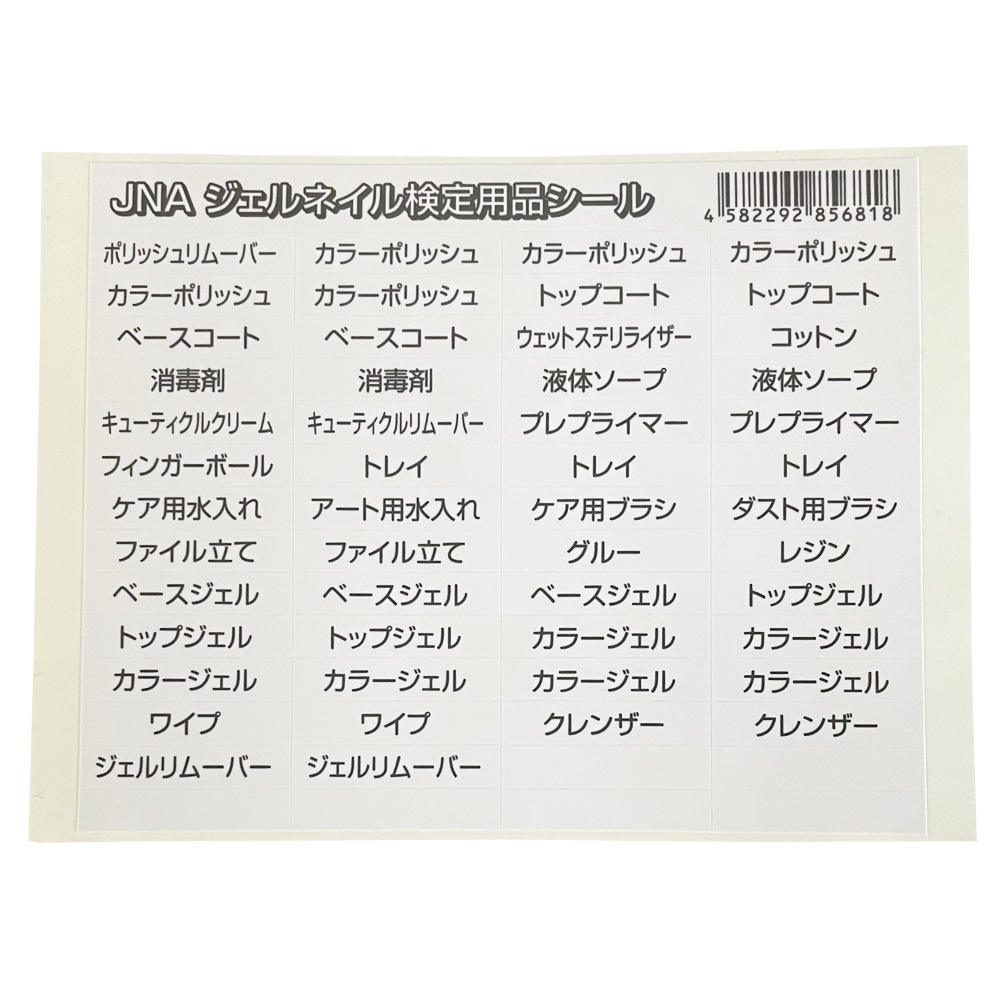 JNA ジェルネイル検定用品シール
4 582292 856818
ポリッシュリムーバー カラーポリッシュ カラーポリッシュ カラーポリッシュ
カラーポリッシュ カラーポリッシュ トップコート トップコート
ベースコート ベースコート ウェットステリライザー コットン
消毒剤 消毒剤 液体ソープ 液体ソープ
キューティクルクリーム キューティクルリムーバー プレプライマー プレプライマー
フィンガーボール トレイ トレイ トレイ
ケア用水入れ アート用水入れ ケア用ブラシ ダスト用ブラシ
ファイル立て ファイル立て グルー レジン
ベースジェル ベースジェル ベースジェル トップジェル
トップジェル トップジェル カラージェル カラージェル
カラージェル カラージェル カラージェル カラージェル
ワイプ ワイプ クレンザー クレンザー
ジェルリムーバー ジェルリムーバー